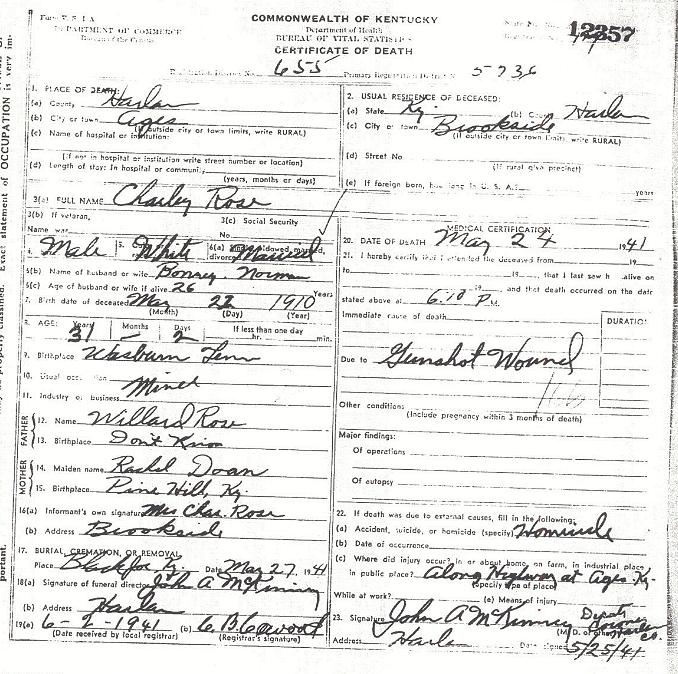 Form V. S. 1-A
DEPARTMENT OF COMMERCE
Bureau of the Census
COMMONWEALTH OF KENTUCKY
Department of Health
BUREAU OF VITAL STATISTICS
CERTIFICATE OF DEATH
State File No. 12357
Registration District No. 655 Primary Registration District No. 5736
1. PLACE OF DEATH:
(a) County Harlan
(b) City or town Ages
(If outside city or town limits, write RURAL)
(c) Name of hospital or institution:
(If not in hospital or institution write street number or location)
(d) Length of stay: In hospital or community
(years, months or days)
2. USUAL RESIDENCE OF DECEASED:
(a) State Ky. (b) County Harlan
(c) City or town Brookside
(If outside city or town limits, write RURAL)
(d) Street No
(If rural give precinct)
(e) If foreign born, how long in U. S. A.? years
3(a) FULL NAME Charley Rose
3(b) If veteran, 3(c) Social Security
Name war No.
4. Male 5. White 6(a) Single, widowed, married, divorced Married
6(b) Name of husband or wife Norman
6(c) Age of husband or wife if alive 26 Years
7. Birth date of deceased May 22 1910
(Month) (Day) (Year)
8. AGE: Years Months Days If less than one day
31 – 2 hr. min.
9. Birthplace Wasburn Tenn
10. Usual occupation Miner
11. Industry or business
FATHER
12. Name Willard Rose
13. Birthplace Don't Know
MOTHER
14. Maiden name Rachel Doan
15. Birthplace Pine Hill, Ky.
16(a) Informant's own signature Mrs Chas. Rose
(b) Address Brookside
17. BURIAL, CREMATION, OR REMOVAL
Place Ky. Date May 27, 1941
18(a) Signature of funeral director John A McKinney
(b) Address Harlan
19(a) 6-2-1941 (b)
(Date received by local registrar) (Registrar's signature)
MEDICAL CERTIFICATION
20. DATE OF DEATH May 24 1941
21. I hereby certify that I attended the deceased from 19
to 19 , that I last saw h alive on
19 , and that death occurred on the date
stated above at 6:10 P. M.
Immediate cause of death DURATION
Due to Gunshot Wound
Other conditions
(Include pregnancy within 3 months of death)
Major findings:
Of operations
Of autopsy
22. If death was due to external causes, fill in the following:
(a) Accident, suicide, or homicide (specify) Homicide
(b) Date of occurrence
(c) Where did injury occur? In or about home, on farm, in industrial place
in public place? Along Highway at Ages. Ky.
(Specify type of place)
While at work? (e) Means of injury
23. Signature John A McKinney Deputy Coroner Harlan Co.
(M. D. or other)
Address Harlan Date signed 5/25/41
Exact statement of OCCUPATION is very im-
may be properly classified.
portant.